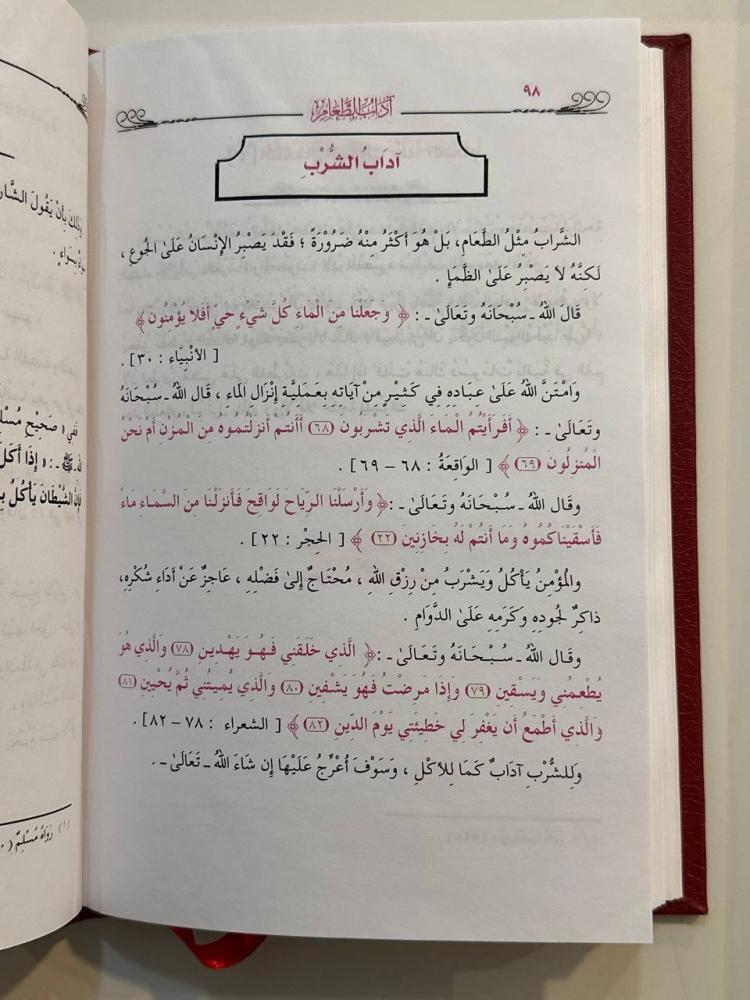 ٩٨
آدَابُ الطَّعَامِ
آدَابُ الشُّرْبِ
الشَّرَابُ مِثْلُ الطَّعَامِ، بَلْ هُوَ أَكْثَرُ مِنْهُ ضَرُورَةً ؛ فَقَدْ يَصْبِرُ الإِنْسَانُ عَلَىٰ الجُوعِ ،
لَكِنَّهُ لاَ يَصْبِرُ عَلَىٰ الظَّمَإِ .
قَالَ اللهُ ـ سُبْحَانَهُ وتَعَالَىٰ ـ : ﴿ وَجَعَلْنَا مِنَ الْمَاءِ كُلَّ شَيْءٍ حَيٍّ أَفَلا يُؤْمِنُونَ ﴾
[ الأَنْبِيَاء : ٣٠ ] .
وَامْتَنَّ اللهُ عَلَىٰ عِبَادِهِ فِي كَثِيْرٍ مِنْ آيَاتِهِ بِعَمَلِيَّةِ إِنْزَالِ المَاءِ ، قَالَ اللهُ ـ سُبْحَانَهُ
وتَعَالَىٰ ـ : ﴿ أَفَرَأَيْتُمُ الْمَاءَ الَّذِي تَشْرَبُونَ (٦٨) أَأَنتُمْ أَنزَلْتُمُوهُ مِنَ الْمُزْنِ أَمْ نَحْنُ
الْمُنزِلُونَ (٦٩) ﴾ [ الوَاقِعَةُ : ٦٨ – ٦٩ ] .
وَقَال اللهُ ـ سُبْحَانَهُ وتَعَالَىٰ ـ : ﴿ وَأَرْسَلْنَا الرِّيَاحَ لَوَاقِحَ فَأَنزَلْنَا مِنَ السَّمَاءِ مَاءً
فَأَسْقَيْنَاكُمُوهُ وَمَا أَنتُمْ لَهُ بِخَازِنِينَ (٢٢) ﴾ [ الحِجْر : ٢٢ ] .
والمُؤْمِنُ يَأْكُلُ وَيَشْرَبُ مِنْ رِزْقِ اللهِ ، مُحْتَاجٌ إِلَىٰ فَضْلِهِ ، عَاجِزٌ عَنْ أَدَاءِ شُكْرِهِ،
ذَاكِرٌ لِجُودِهِ وَكَرَمِهِ عَلَىٰ الدَّوَامِ .
وَقَال اللهُ ـ سُبْحَانَهُ وَتَعَالَىٰ ـ : ﴿ الَّذِي خَلَقَنِي فَهُوَ يَهْدِينِ (٧٨) وَالَّذِي هُوَ
يُطْعِمُنِي وَيَسْقِينِ (٧٩) وَإِذَا مَرِضْتُ فَهُوَ يَشْفِينِ (٨٠) وَالَّذِي يُمِيتُنِي ثُمَّ يُحْيِينِ (٨١)
وَالَّذِي أَطْمَعُ أَن يَغْفِرَ لِي خَطِيئَتِي يَوْمَ الدِّينِ (٨٢) ﴾ [ الشعراء : ٧٨ – ٨٢ ] .
وَلِلشُّرْبِ آدَابٌ كَمَا لِلأَكْلِ ، وَسَوْفَ أُعَرِّجُ عَلَيْهَا إِن شَاءَ اللهُ ـ تَعَالَىٰ ـ .
وَذَلِكَ بِأَنْ يَقُولَ الشَّارِ
فَفِي « صَحِيْحِ مُسْلِ
ﷺ ـ : « إِذَا أَكَلَ
فَإِنَّ الشَّيْطَانَ يَأْكُلُ بِ
(١) رَوَاهُ مُسْلِمٌ (